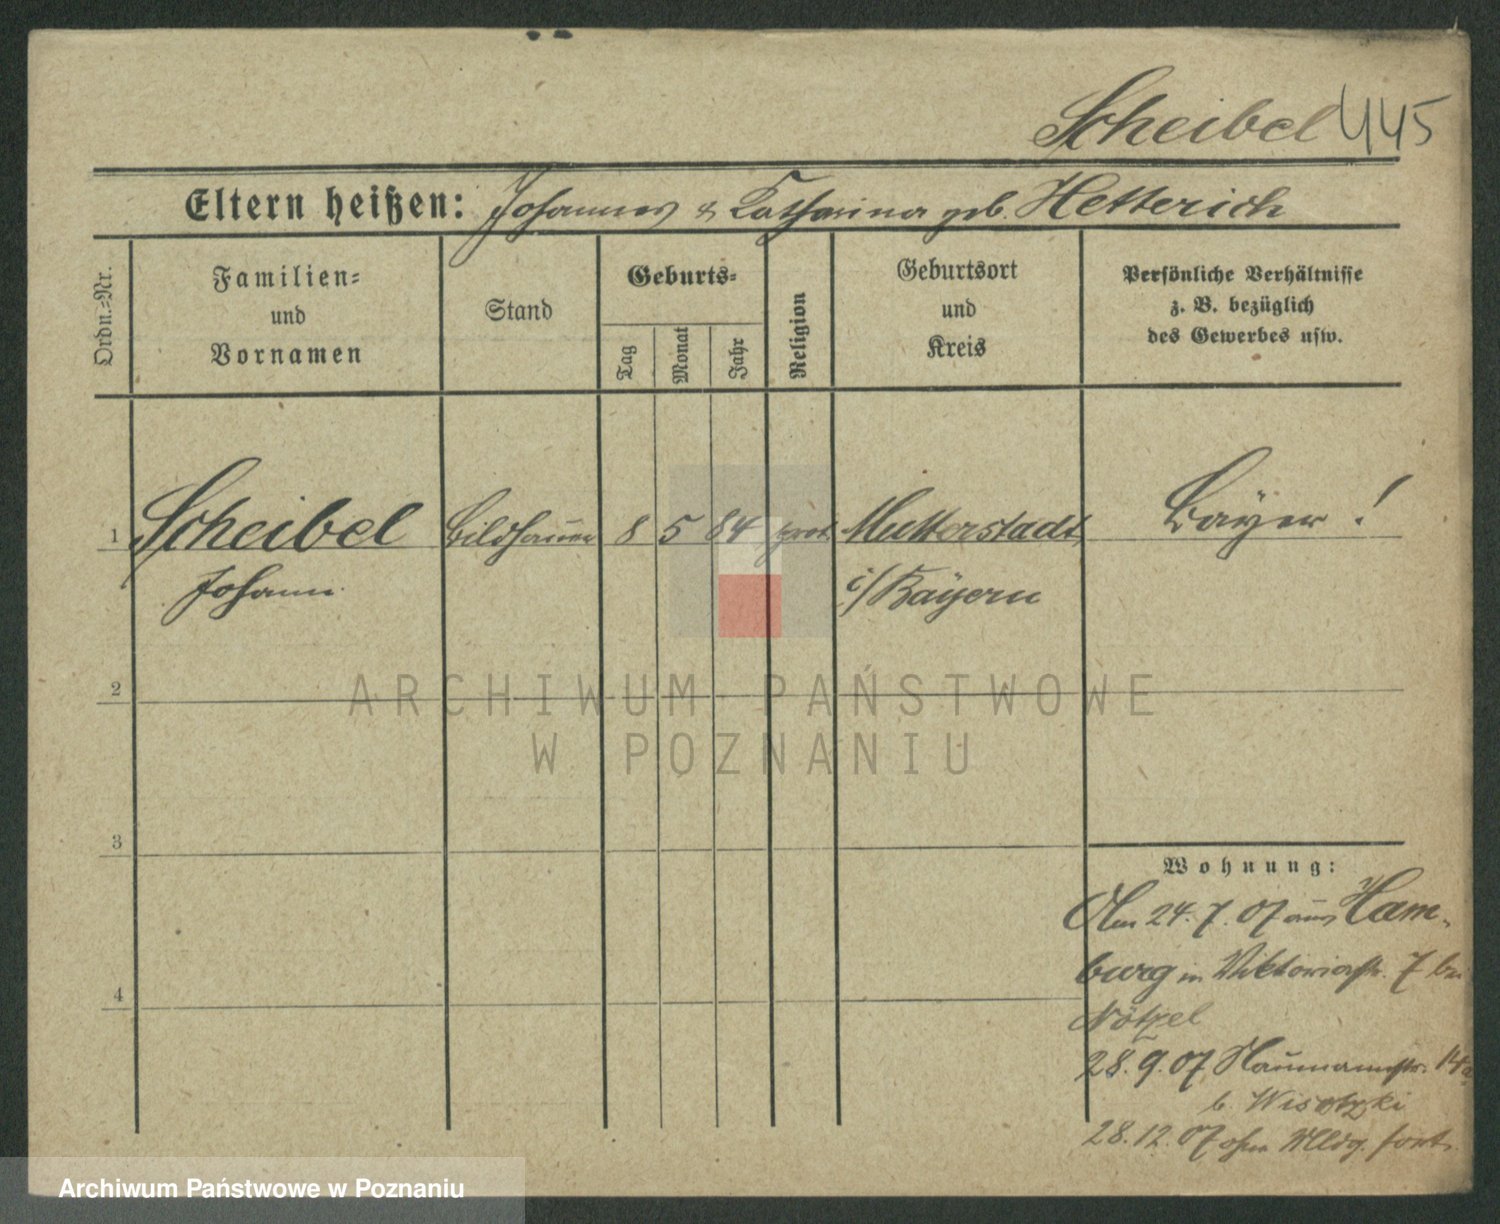 Scheibel 445
Eltern heißen: Johannes & Katharina geb. Hetterich
Ordn.=Nr.
Familien=
und
Vornamen
Stand
Geburts=
Tag
Monat
Jahr
Religion
Geburtsort
und
Kreis
Persönliche Verhältnisse
z. B. bezüglich
des Gewerbes usw.
1 Scheibel Bildhauer 8 5 84 prot. Mutterstadt Bayer!
Johann i/Bayern
2
3
4
Wohnung:
Am 24.7.07 aus Ham-
burg in Viktoriastr. 7 bei
Nötzel
28.9.07 Naumannstr. 14a
b. Wisotzki
28.12.07 ohne Mldg. fort.
ARCHIWUM PAŃSTWOWE
W POZNANIU
Archiwum Państwowe w Poznaniu